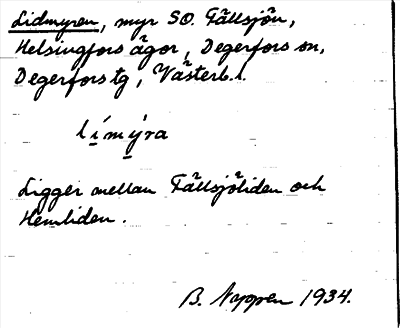 Lidmyren, myr SO. Fällsjön,
Helsingfors ägor, Degerfors sn,
Degerfors tg, Västerb. l.
lí̱mý̱ra
Ligger mellan Fällsjöliden och
Hemliden.
B. 1934.